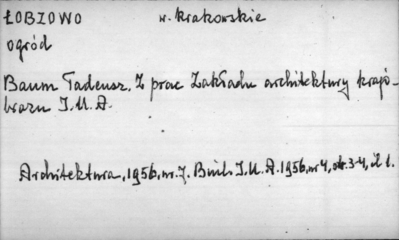 ŁOBZOWO w. krakowskie
ogród
Baum Tadeusz. Z prac Zakładu architektury krajo-
brazu I.U.A.
Architektura, 1956, nr. 7. Biul. I.U.A. 1956, nr 4, str. 3-4, il 1.